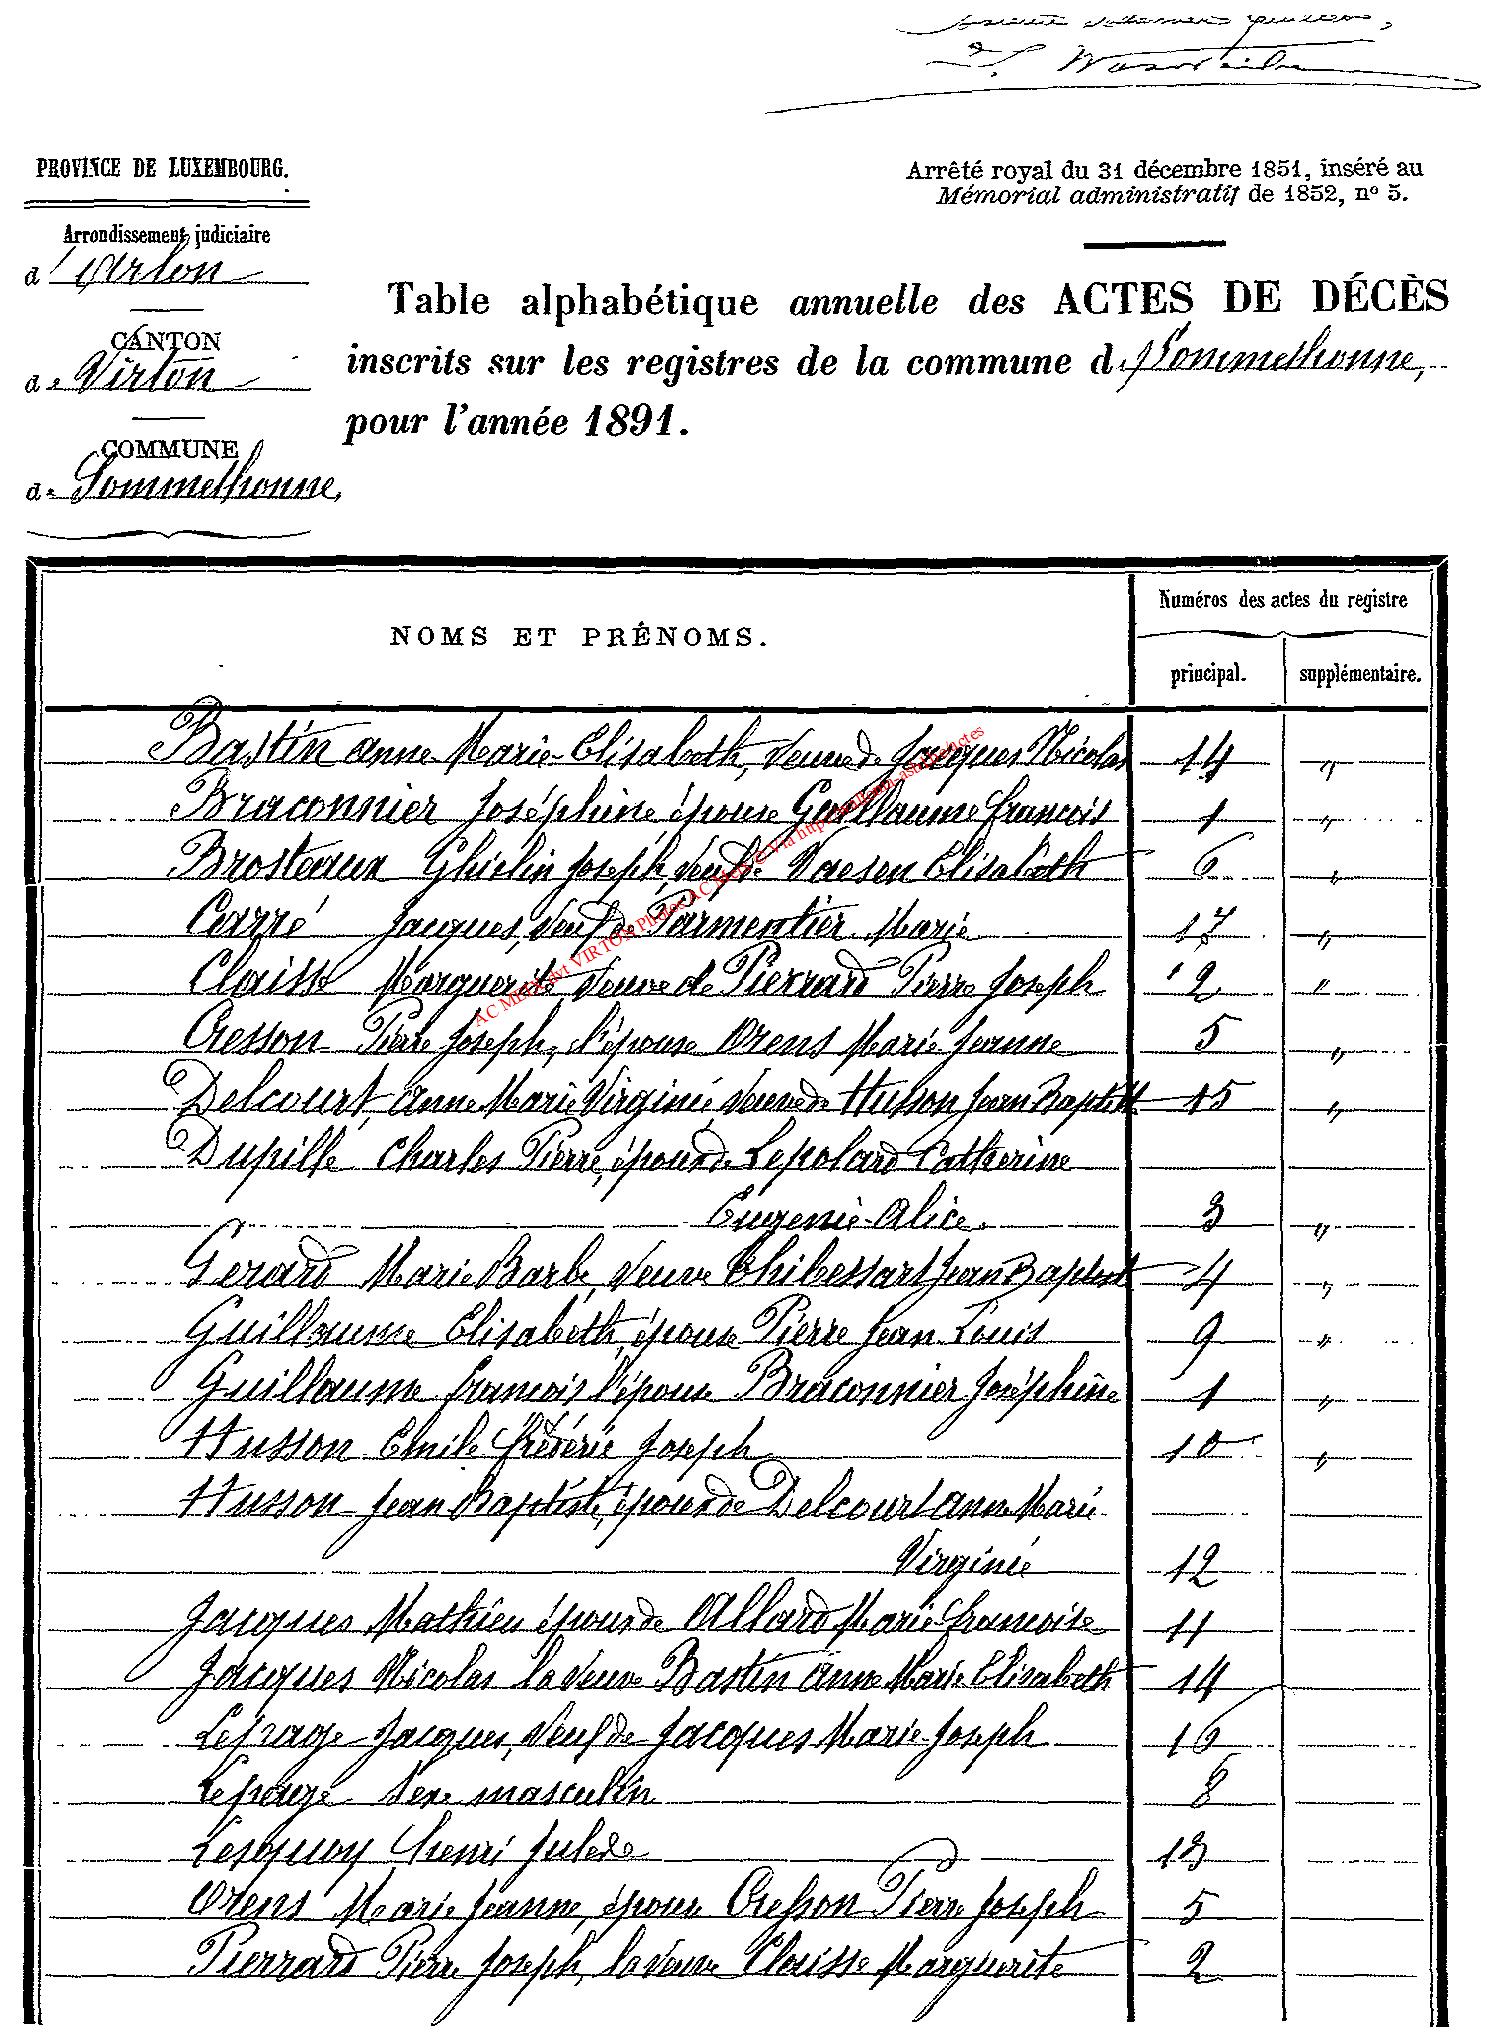 PROVINCE DE LUXEMBOURG.
Arrondissement judiciaire
d'Arlon
CANTON
de Virton
COMMUNE
de Sommethonne,
Arrêté royal du 31 décembre 1851, inséré au
Mémorial administratif de 1852, nº 5.
Table alphabétique annuelle des ACTES DE DÉCÈS
inscrits sur les registres de la commune de Sommethonne,
pour l'année 1891.
NOMS ET PRÉNOMS.
Numéros des actes du registre
principal. supplémentaire.
Bastin Anne Marie-Elisabeth, Veuve de Jacques Nicolas 14 "
Braconnier Joséphine épouse Guillaume François 1 "
Brosteaux Ghislin Joseph, veuf de Vaesen Elisabeth 6 "
Carré Jacques, veuf de Parmentier Marie 17 "
Claisse Marguerite, Veuve de Pierrard Pierre Joseph 2 "
Cresson Pierre Joseph, l'épouse Orens Marie Jeanne 5 "
Delcourt, Anne Marie Virginie, Veuve de Husson Jean Baptiste 15 "
Dupille Charles Pierre, époux de Lepolard Catherine
Eugenie Alice. 3 "
Gerard Marie Barbe, Veuve Thibessart Jean Baptiste 4 "
Guillaume Elisabeth, épouse Pierre Jean Louis 9 "
Guillaume François l'épouse Braconnier Joséphine 1 "
Husson Emile Fréderic Joseph 10 "
Husson Jean Baptiste, époux de Delcourt Anne Marie
Virginie 12
Jacques Mathieu époux de Allard Marie-Françoise 11
Jacques Nicolas la Veuve Bastin Anne Marie Elisabeth 14
Lepage Jacques, Veuf de Jacques Marie-Joseph 16
Lepage Sexe masculin 8
Lesquoy Henri Jules 13
Orens Marie Jeanne, épouse Cresson Pierre Joseph 5
Pierrard Pierre Joseph, la Veuve Claisse Marguerite 2